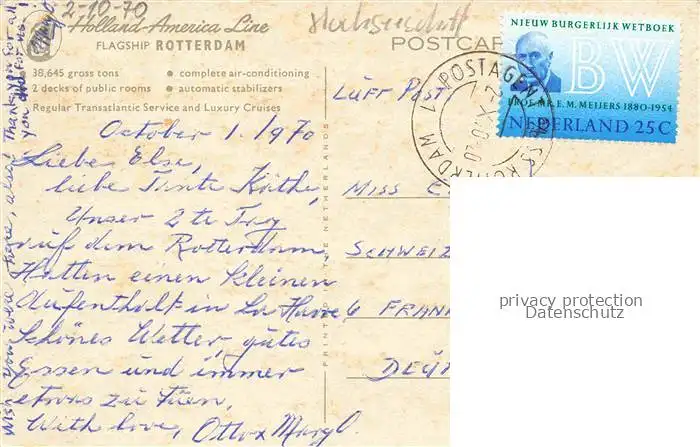 2-10-70
Holland-America Line
FLAGSHIP ROTTERDAM
38,645 gross tons • complete air-conditioning
2 decks of public rooms • automatic stabilizers
Regular Transatlantic Service and Luxury Cruises
October 1. 1970
Liebe Else,
liebe Tante Käthe,
Unser 2te Tag
auf dem Rotterdam,
Hatten einen kleinen
Aufenthalt in La Havre
Schönes Wetter, gutes
Essen und immer
etwas zu tuen,
With love, Otto x Mary O.
Wish you were here, also! Thank you for all
you did for us!
PRINTED IN THE NETHERLANDS
POSTCAR
NIEUW BURGERLIJK WETBOEK
BW
PROF. MR. E. M. MEIJERS 1880-1954
NEDERLAND 25C
POSTAGENT
ROTTERDAM
Luft Post
Miss E
Schweiz
6 Fran
Deu
privacy protection
Datenschutz